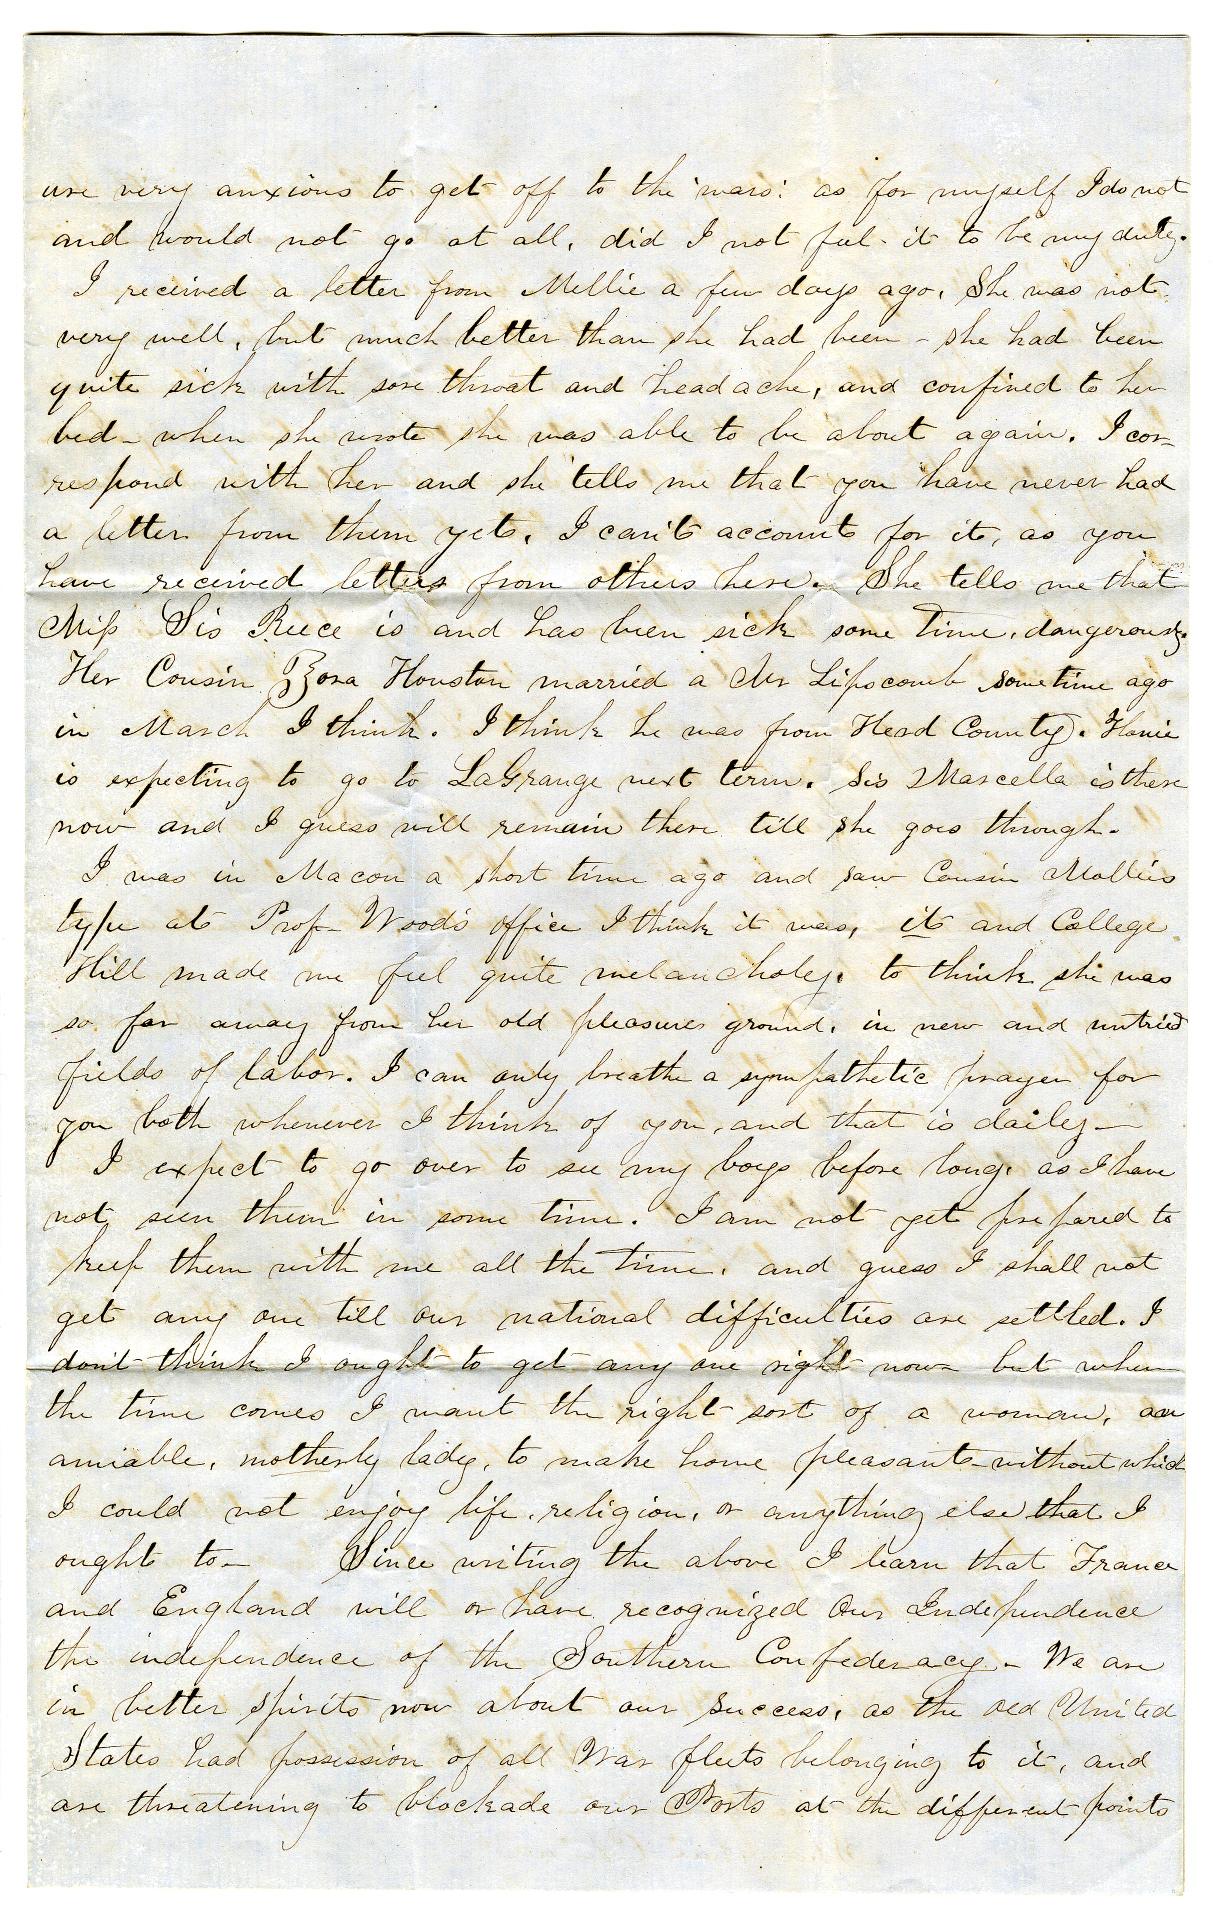 are very anxious to get off to the 'wars': as for myself I do not
and would not go at all, did I not feel it to be my duty.
I received a letter from Mellie a few days ago. She was not
very well, but much better than she had been - she had been
quite sick with sore throat and headache, and confined to her
bed - when she wrote she was able to be about again. I cor-
respond with her and she tells me that you have never had
a letter from them yet. I can't account for it, as you
have received letters from others here. She tells me that
Miss Sis Reece is and has been sick some time, dangerously.
Her Cousin Zora Houston married a Mr Lipscomb sometime ago
in March I think. I think he was from Head County.
is expecting to go to LaGrange next term. Sis Marcella is there
now and I guess will remain there till she goes through.
I was in Macon a short time ago and saw Cousin Mollies
type at Prof Wood's office I think it was, it and College
Hill made me feel quite melancholy, to think she was
so far away from her old pleasure ground, in new and untried
fields of labor. I can only breathe a sympathetic prayer for
you both whenever I think of you, and that is daily -
I expect to go over to see my boys before long, as I have
not seen them in some time. I am not yet prepared to
keep them with me all the time, and guess I shall not
get any one till our national difficulties are settled. I
don't think I ought to get any one right now but when
the time comes I want the right sort of a woman, an
amiable, motherly lady, to make home pleasant - without which
I could not enjoy life, religion, or anything else that I
ought to - Since writing the above I learn that France
and England will or have recognized Our Independence
the independence of the Southern Confederacy - We are
in better spirits now about our success, as the old United
States had possession of all War fleets belonging to it, and
are threatening to blockade our Ports at the different points